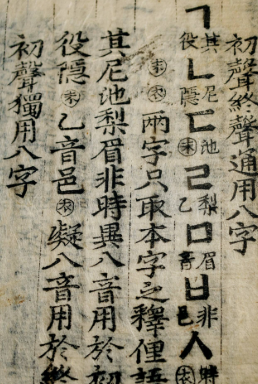 初聲終聲通用八字
ㄱ其役ㄴ尼隱ㄷ池末ㄹ梨乙ㅁ眉音ㅂ非邑ㅅ時衣
末衣兩字只取本字之釋俚語
其尼池梨眉非時異八音用於初
役隱末乙音邑衣凝八音用於終
初聲獨用八字